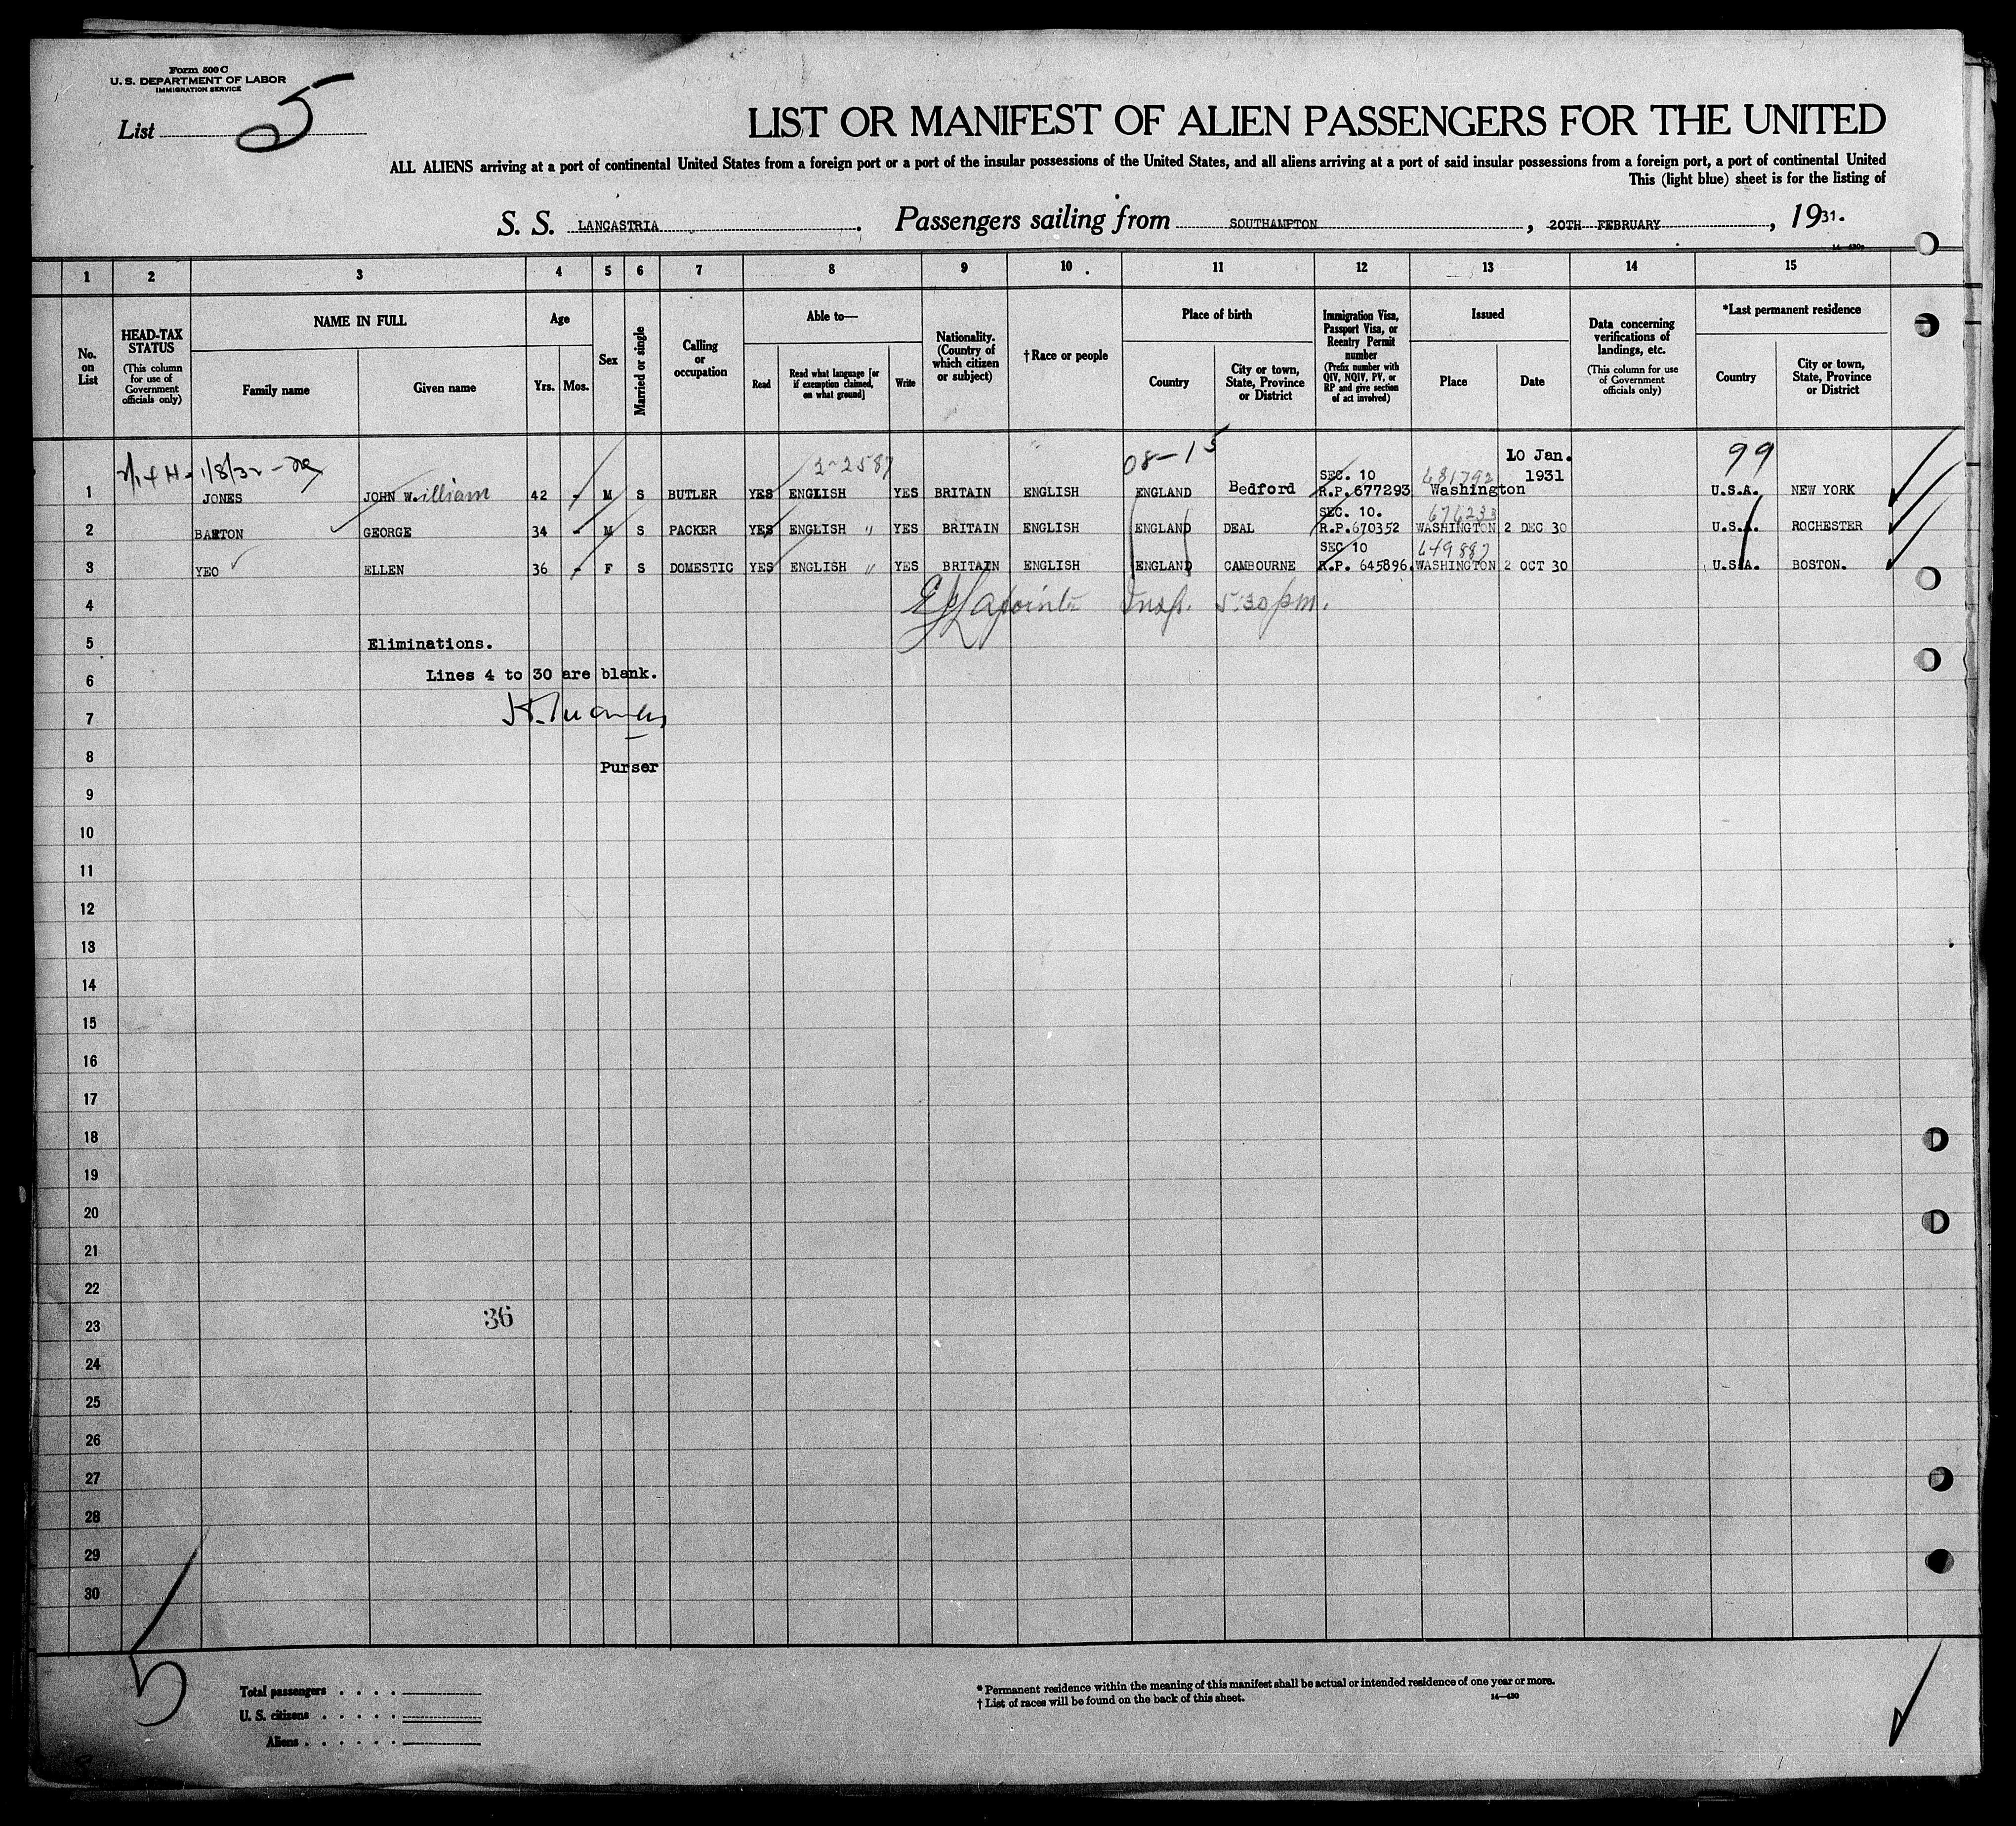 Form 500 C
U. S. DEPARTMENT OF LABOR
IMMIGRATION SERVICE
List 5
LIST OR MANIFEST OF ALIEN PASSENGERS FOR THE UNITED
ALL ALIENS arriving at a port of continental United States from a foreign port or a port of the insular possessions of the United States, and all aliens arriving at a port of said insular possessions from a foreign port, a port of continental United
This (light blue) sheet is for the listing of
S. S. LANCASTRIA. Passengers sailing from SOUTHAMPTON, 20TH FEBRUARY, 1931.
14-430
1 2 3 4 5 6 7 8 9 10 11 12 13 14 15
No. on List
HEAD-TAX STATUS (This column for use of Government officials only)
NAME IN FULL
Family name
Given name
Age
Yrs. Mos.
Sex
Married or single
Calling or occupation
Able to—
Read
Read what language [or if exemption claimed, on what ground]
Write
Nationality. (Country of which citizen or subject)
†Race or people
Place of birth
Country
City or town, State, Province or District
Immigration Visa, Passport Visa, or Reentry Permit number (Prefix number with QIV, NQIV, PV, or RP and give section of act involved)
Issued
Place
Date
Data concerning verifications of landings, etc. (This column for use of Government officials only)
*Last permanent residence
Country
City or town, State, Province or District
1/8/32 2-2587 08-15 SEC. 10 681792 10 Jan. 1931 99
1 JONES JOHN William 42 - M S BUTLER YES ENGLISH YES BRITAIN ENGLISH ENGLAND Bedford R.P.677293 Washington U.S.A. NEW YORK
SEC. 10. 676233
2 BARTON GEORGE 34 - M S PACKER YES ENGLISH " YES BRITAIN ENGLISH ENGLAND DEAL R.P.670352 WASHINGTON 2 DEC 30 U.S.A. ROCHESTER
SEC 10 649887
3 YEO ELLEN 36 - F S DOMESTIC YES ENGLISH " YES BRITAIN ENGLISH ENGLAND CAMBOURNE R.P. 645896. WASHINGTON 2 OCT 30 U.S.A. BOSTON.
4 Lapointe Insp. 5:30 pm.
5 Eliminations.
6 Lines 4 to 30 are blank.
7
8 Purser
9
10
11
12
13
14
15
16
17
18
19
20
21
22
23 36
24
25
26
27
28
29
30
5
Total passengers . . . .
U. S. citizens . . . . .
Aliens . . . . . .
* Permanent residence within the meaning of this manifest shall be actual or intended residence of one year or more.
† List of races will be found on the back of this sheet. 14-430